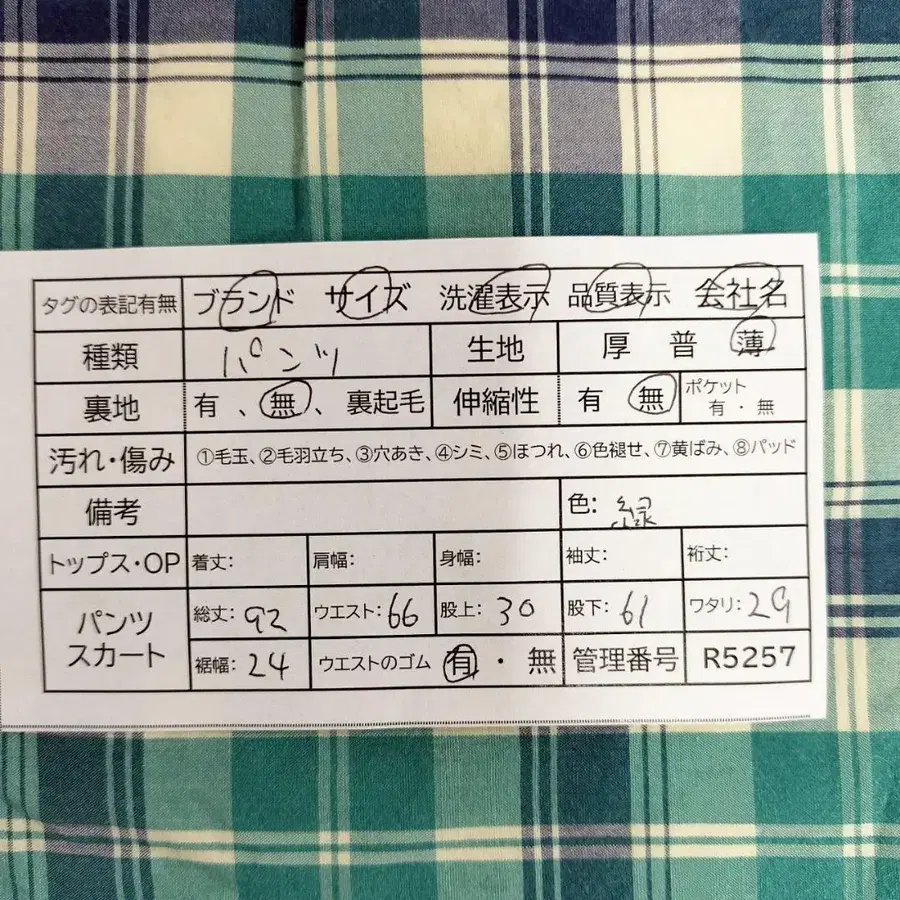 タグの表記有無 ブランド サイズ 洗濯表示 品質表示 会社名
種類 パンツ 生地 厚 普 薄
裏地 有、無、裏起毛 伸縮性 有 無 ポケット 有・無
汚れ・傷み ①毛玉、②毛羽立ち、③穴あき、④シミ、⑤ほつれ、⑥色褪せ、⑦黄ばみ、⑧パッド
備考 色: 緑
トップス・OP 着丈: 肩幅: 身幅: 袖丈: 裄丈:
パンツ スカート 総丈: 92 ウエスト: 66 股上: 30 股下: 61 ワタリ: 29
裾幅: 24 ウエストのゴム 有・無 管理番号 R5257